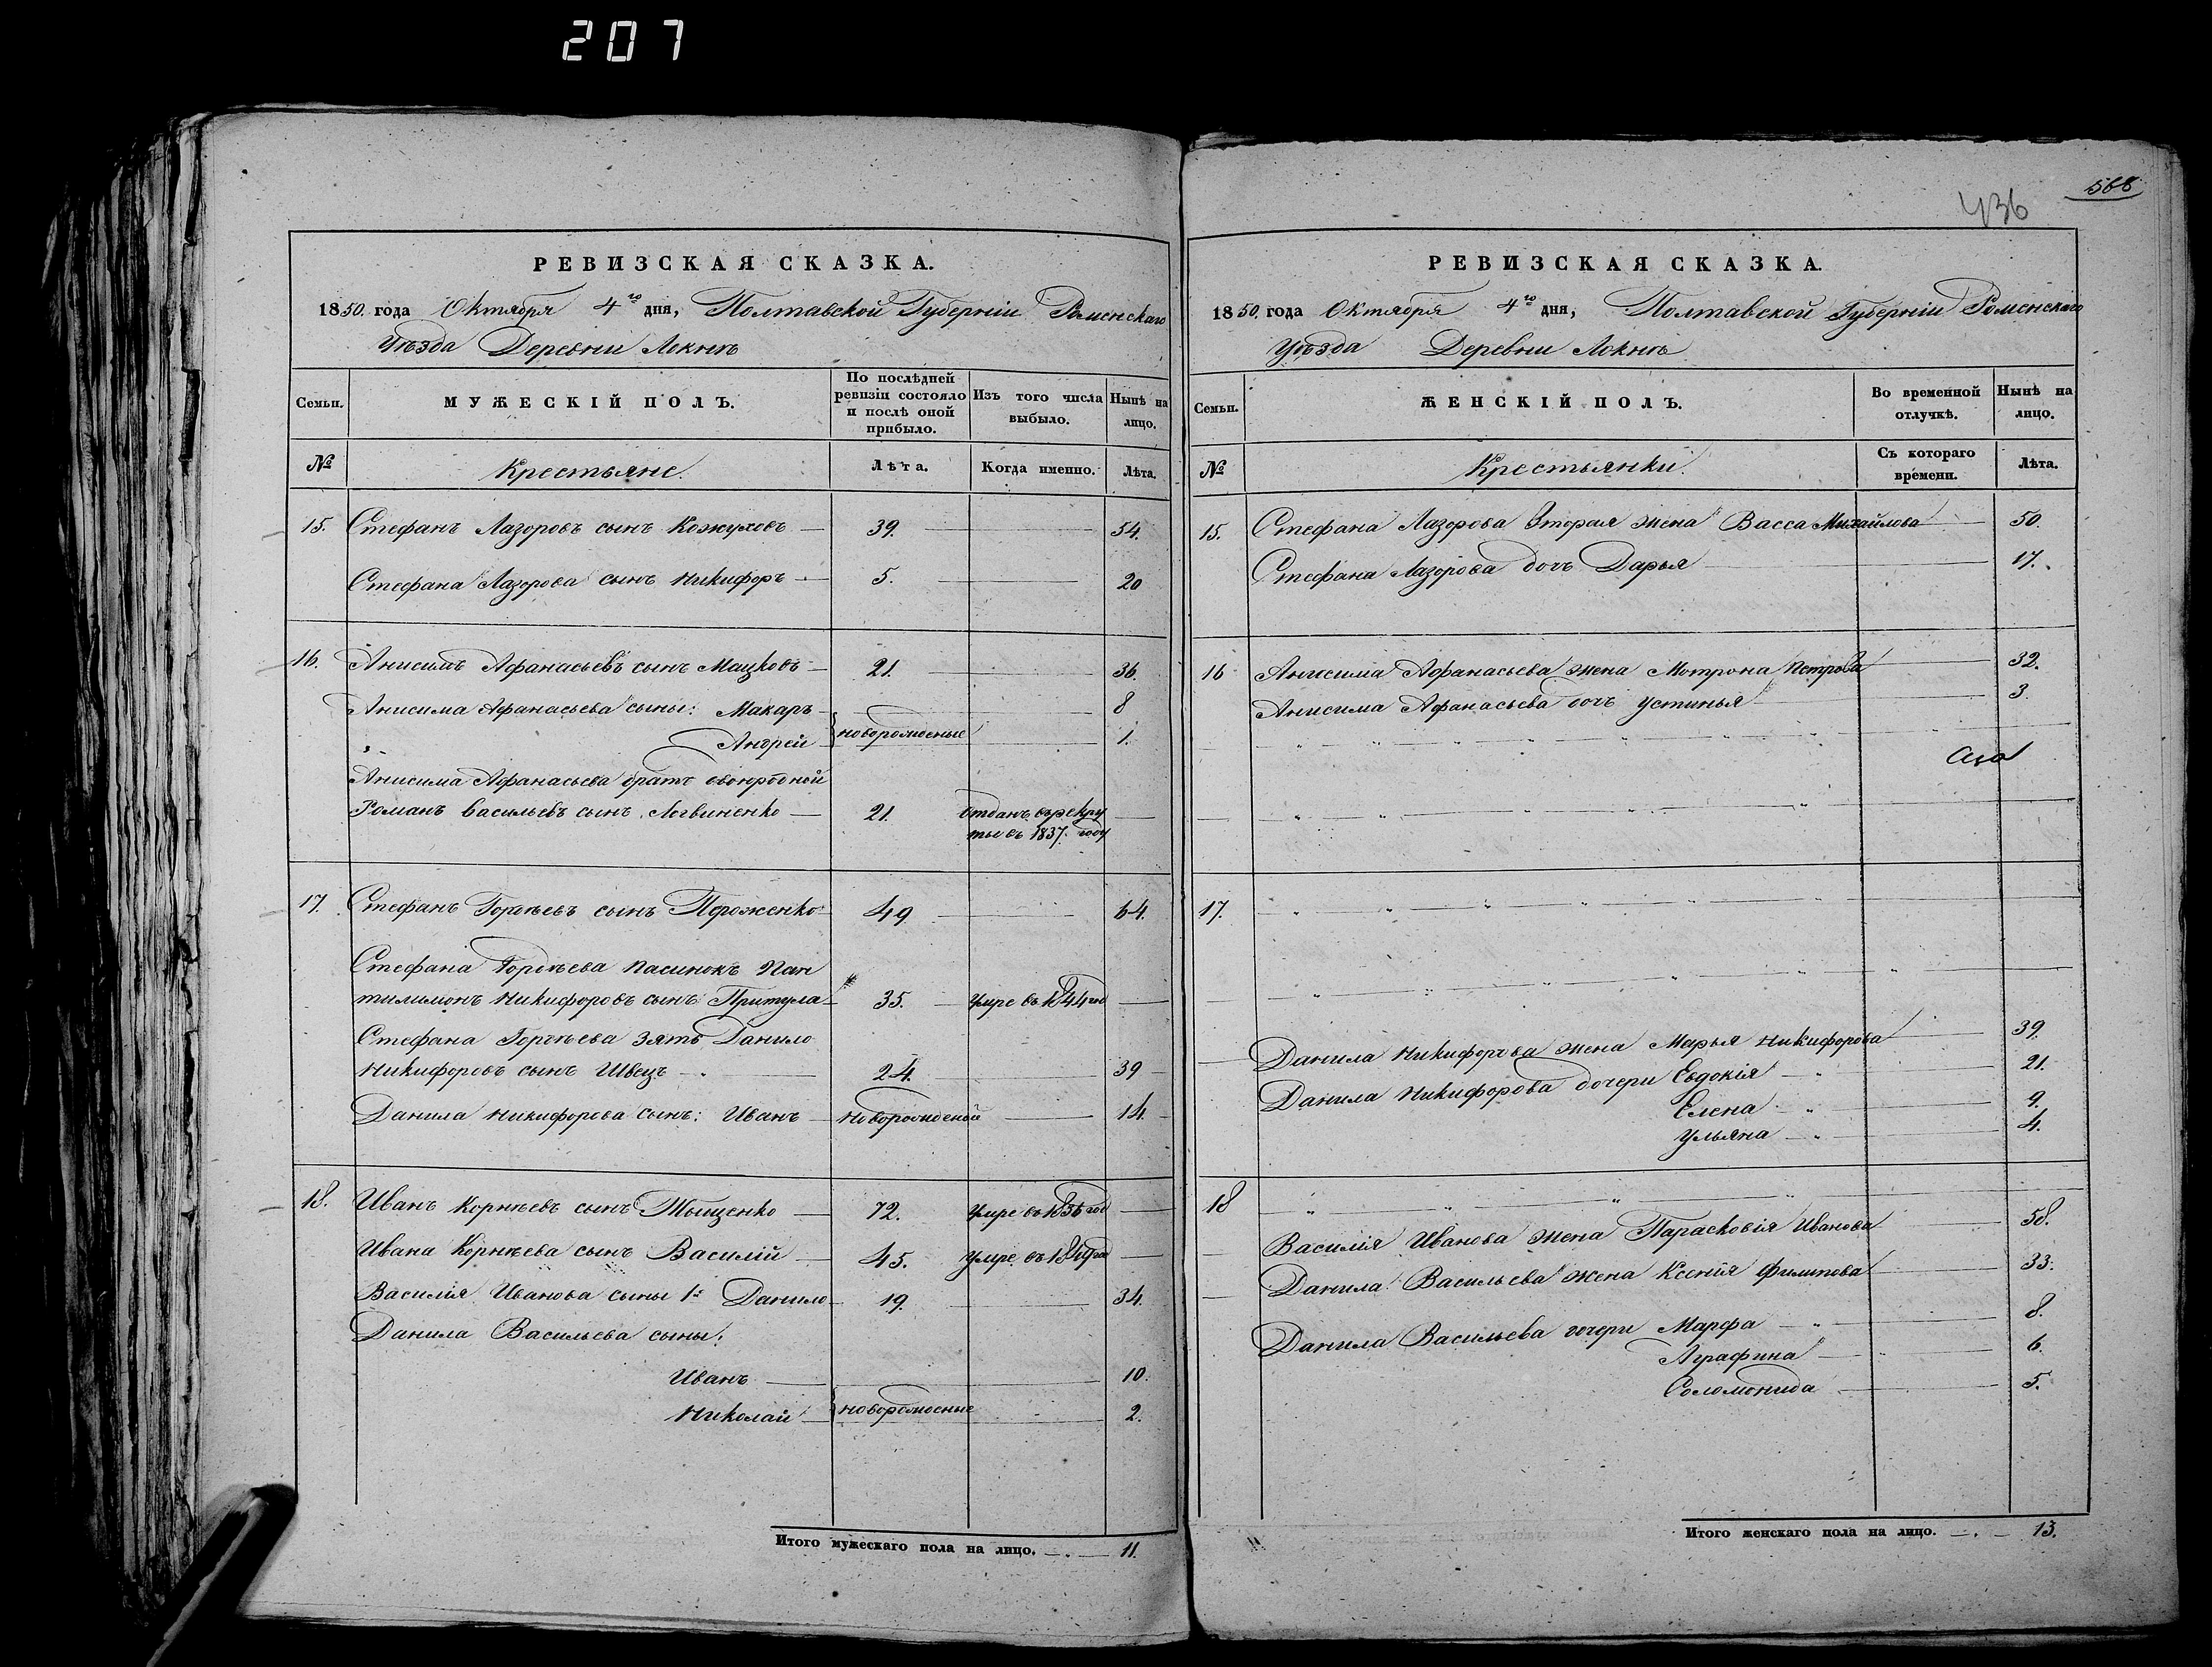 207
568
436
РЕВИЗСКАЯ СКАЗКА.
1850. года Октября 4го дня, Полтавской Губерніи Роменскаго
Уѣзда Деревни Локнѣ
Семьи.
МУЖЕСКІЙ ПОЛЪ.
По послѣдней ревизіи состояло и послѣ оной прибыло.
Изъ того числа выбыло.
Нынѣ на лицо.
№ Крестьяне. Лѣта. Когда именно. Лѣта.
15. Стефанъ Лазоровъ сынъ Кожуховъ 39. 54.
Стефана Лазорова сынъ Никифоръ 5. 20
16. Анисимъ Афанасьевъ сынъ Мацковъ 21. 36.
Анисима Афанасьева сыны: Макаръ 8
Андрей новорожденые 1.
Анисима Афанасьева братъ двоюродной
Романъ Васильевъ сынъ Логвиненко 21. отданъ въ рекру
ты въ 1837. году
17. Стефанъ Гордѣевъ сынъ 49 64.
Стефана Гордѣева пасинокъ Пан
тилимонъ Никифоровъ сынъ Притула 35. умре въ 1844 год
Стефана Гордѣева зять Данило
Никифоровъ сынъ Швецъ 24. 39
Данила Никифорова сынъ: Иванъ Новорожденый 14
18. Иванъ Корнѣевъ сынъ Тыщенко 72. умре въ 1836 год
Ивана Корнѣева сынъ Василій 45. умре въ
Василія Иванова сыны 1й Данило 19. 34.
Данила Васильева сыны:
Иванъ 10.
Николай новорожденые 2.
Итого мужескаго пола на лицо. 11.
РЕВИЗСКАЯ СКАЗКА.
1850. года Октября 4го дня, Полтавской Губерніи Роменскаго
Уѣзда Деревни Локнѣ
Семьи.
ЖЕНСКІЙ ПОЛЪ.
Во временной отлучкѣ.
Нынѣ на лицо.
№ Крестьянки. Съ котораго времени. Лѣта.
15. Стефана Лазорова вторая жена Васса Михайлова 50.
Стефана Лазорова дочь Дарья 17.
16 Анисима Афанасьева жена Мотрона Петрова 32.
Анисима Афанасьева дочь Устинья 3.
17.
Данила Никифорова жена Марья Никифорова 39.
Данила Никифорова дочери Евдокія 21.
Елена 9.
Ульяна 4.
18
Василія Иванова жена Парасковія Иванова 58.
Данила Васильева жена Ксенія Филипова 33.
Данила Васильева дочери Марфа 8.
Аграфина 6.
Соломонида 5.
Итого женскаго пола на лицо. 13.